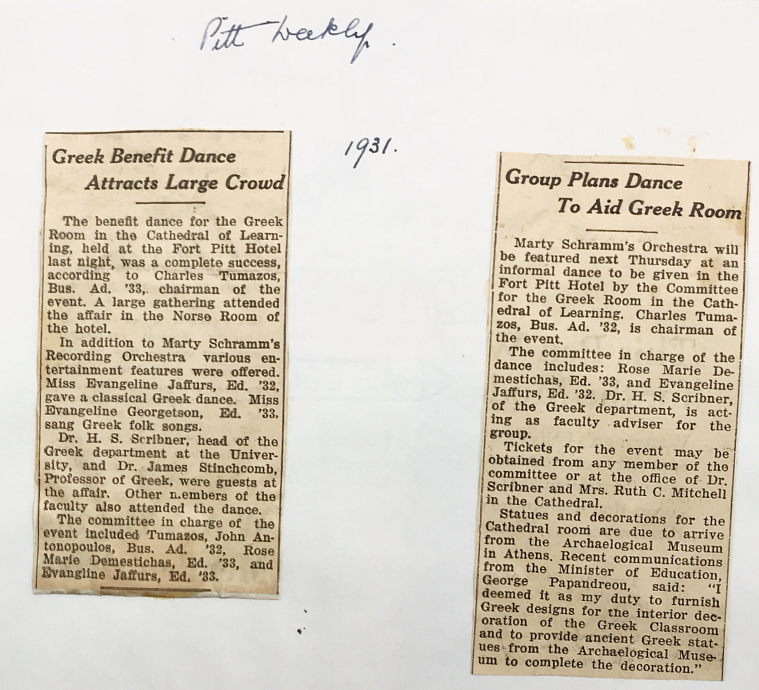 Pitt Weekly.
1931.
Greek Benefit Dance
Attracts Large Crowd
The benefit dance for the Greek
Room in the Cathedral of Learn-
ing, held at the Fort Pitt Hotel
last night, was a complete success,
according to Charles Tumazos,
Bus. Ad. '33, chairman of the
event. A large gathering attended
the affair in the Norse Room of
the hotel.
In addition to Marty Schramm's
Recording Orchestra various en-
tertainment features were offered.
Miss Evangeline Jaffurs, Ed. '32,
gave a classical Greek dance. Miss
Evangeline Georgetson, Ed. '33,
sang Greek folk songs.
Dr. H. S. Scribner, head of the
Greek department at the Univer-
sity, and Dr. James Stinchcomb,
Professor of Greek, were guests at
the affair. Other members of the
faculty also attended the dance.
The committee in charge of the
event included Tumazos, John An-
tonopoulos, Bus. Ad. '32, Rose
Marie Demestichas, Ed. '33, and
Evangline Jaffurs, Ed. '33.
Group Plans Dance
To Aid Greek Room
Marty Schramm's Orchestra will
be featured next Thursday at an
informal dance to be given in the
Fort Pitt Hotel by the Committee
for the Greek Room in the Cath-
edral of Learning. Charles Tuma-
zos, Bus. Ad. '32, is chairman of
the event.
The committee in charge of the
dance includes: Rose Marie De-
mestichas, Ed. '33, and Evangeline
Jaffurs, Ed. '32. Dr. H. S. Scribner,
of the Greek department, is act-
ing as faculty adviser for the
group.
Tickets for the event may be
obtained from any member of the
committee or at the office of Dr.
Scribner and Mrs. Ruth C. Mitchell
in the Cathedral.
Statues and decorations for the
Cathedral room are due to arrive
from the Archaelogical Museum
in Athens. Recent communications
from the Minister of Education,
George Papandreou, said: "I
deemed it as my duty to furnish
Greek designs for the interior dec-
oration of the Greek Classroom
and to provide ancient Greek stat-
ues from the Archaelogical Muse-
um to complete the decoration."